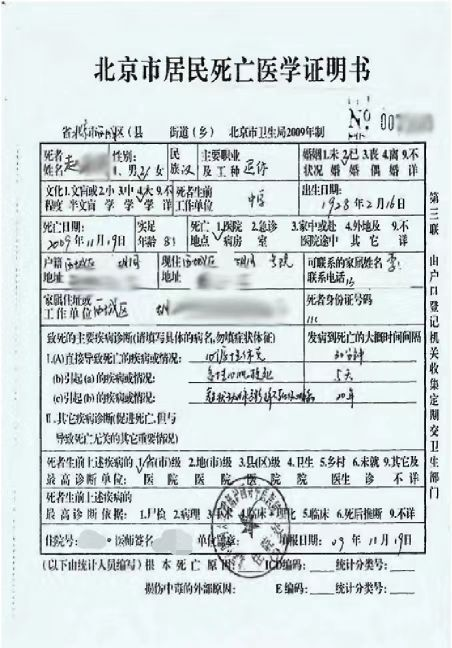 北京市居民死亡医学证明书
No. 00
省北京市西城区(县 街道(乡) 北京市卫生局2009年制
死者姓名 赵 性别: 1.男 2.女 民族 汉 主要职业及工种 退休 婚姻状况 1.未婚 2.已婚 3.丧偶 4.离婚 9.不详
文化程度 1.文盲或半文盲 2.小学 3.中学 4.大学 9.不详 死者生前工作单位 出生日期: 1928年2月16日
死亡日期: 2009年11月19日 实足年龄 81 死亡地点 1.医院病房 2.急诊室 3.家中或赴医院途中 4.外地及其它 9.不详
户籍地址 西城区 胡同 现住地址 西城区 胡同 号院 可联系的家属姓名 李 联系电话
家属住址或工作单位 西城区 死者身份证号码
致死的主要疾病诊断(请填写具体的病名,勿填症状体征) 发病到死亡的大概时间间隔
I.(A)直接导致死亡的疾病或情况: 心源性休克 30分钟
(b)引起(a)的疾病或情况: 急性心肌梗死 5天
(c)引起(b)的疾病或情况: 冠状动脉粥样硬化性心脏病 20年
II.其它疾病诊断(促进死亡,但与
导致死亡无关的其它重要情况)
死者生前上述疾病的最高诊断单位: 1.省(市)级医院 2.地(市)级医院 3.县(区)级医院 4.卫生院 5.乡村医生 6.未就诊 9.其它及不详
死者生前上述疾病的最高诊断依据: 1.尸检 2.病理 3.手术 4.临床+理化 5.临床 6.死后推断 9.不详
住院号: 医师签名 单位盖章: 申报日期: 09年11月19日
(以下由统计人员编写)根本死亡原因 ICD编码: 统计分类号:
损伤中毒的外部原因: E编码: 统计分类号:
第三联 由户口登记机关收集定期交卫生部门